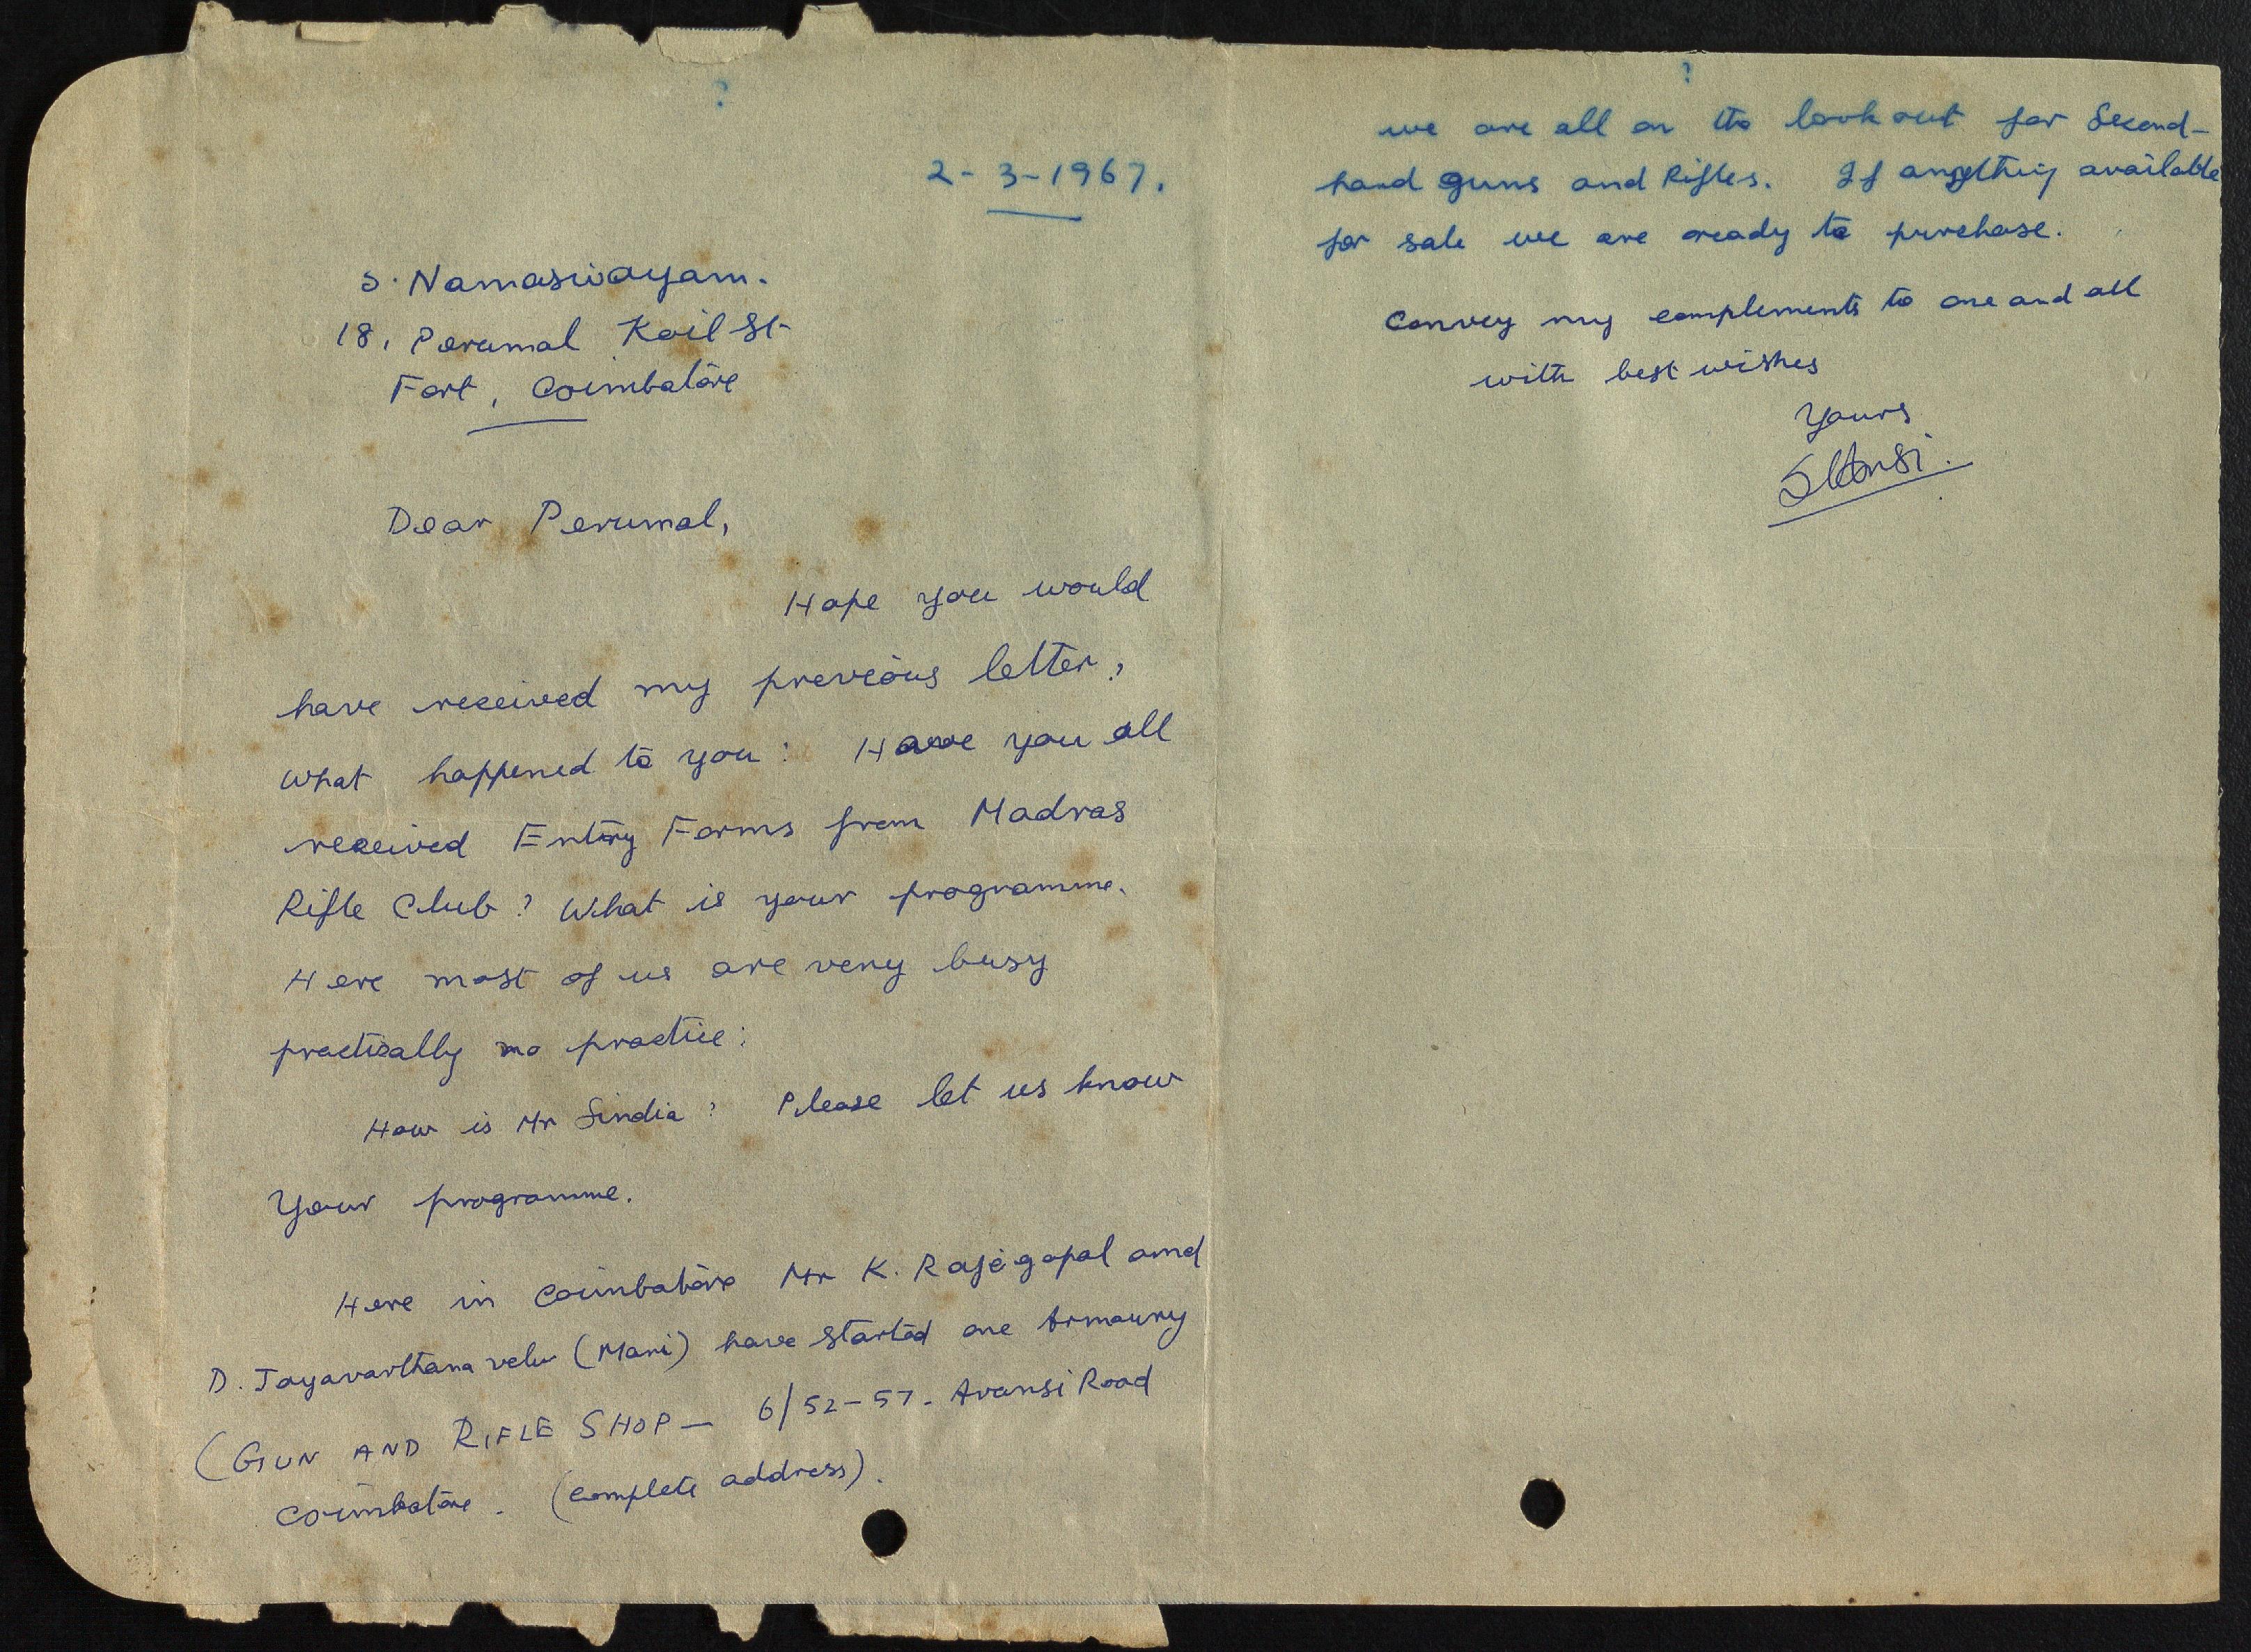 ?
2-3-1967.
S. Namasivayam.
18, Perumal Koil St
Fort, Coimbatore
Dear Perumal,
Hope you would
have received my previous letter,
what happened to you? Have you all
received Entry Forms from Madras
Rifle Club? What is your programme.
Here most of us are very busy
practically no practice;
How is Mr Sindia? Please let us know
Your programme.
Here in Coimbatore Mr K. Rajagopal and
D. Jayavarthanavelu (Mani) have started one Armoury
(GUN AND RIFLE SHOP — 6/52-57. Avansi Road
Coimbatore. (complete address).
?
we are all on the look out for Second-
hand guns and Rifles. If anything available
for sale we are ready to purchase.
Convey my complements to one and all
with best wishes
Yours